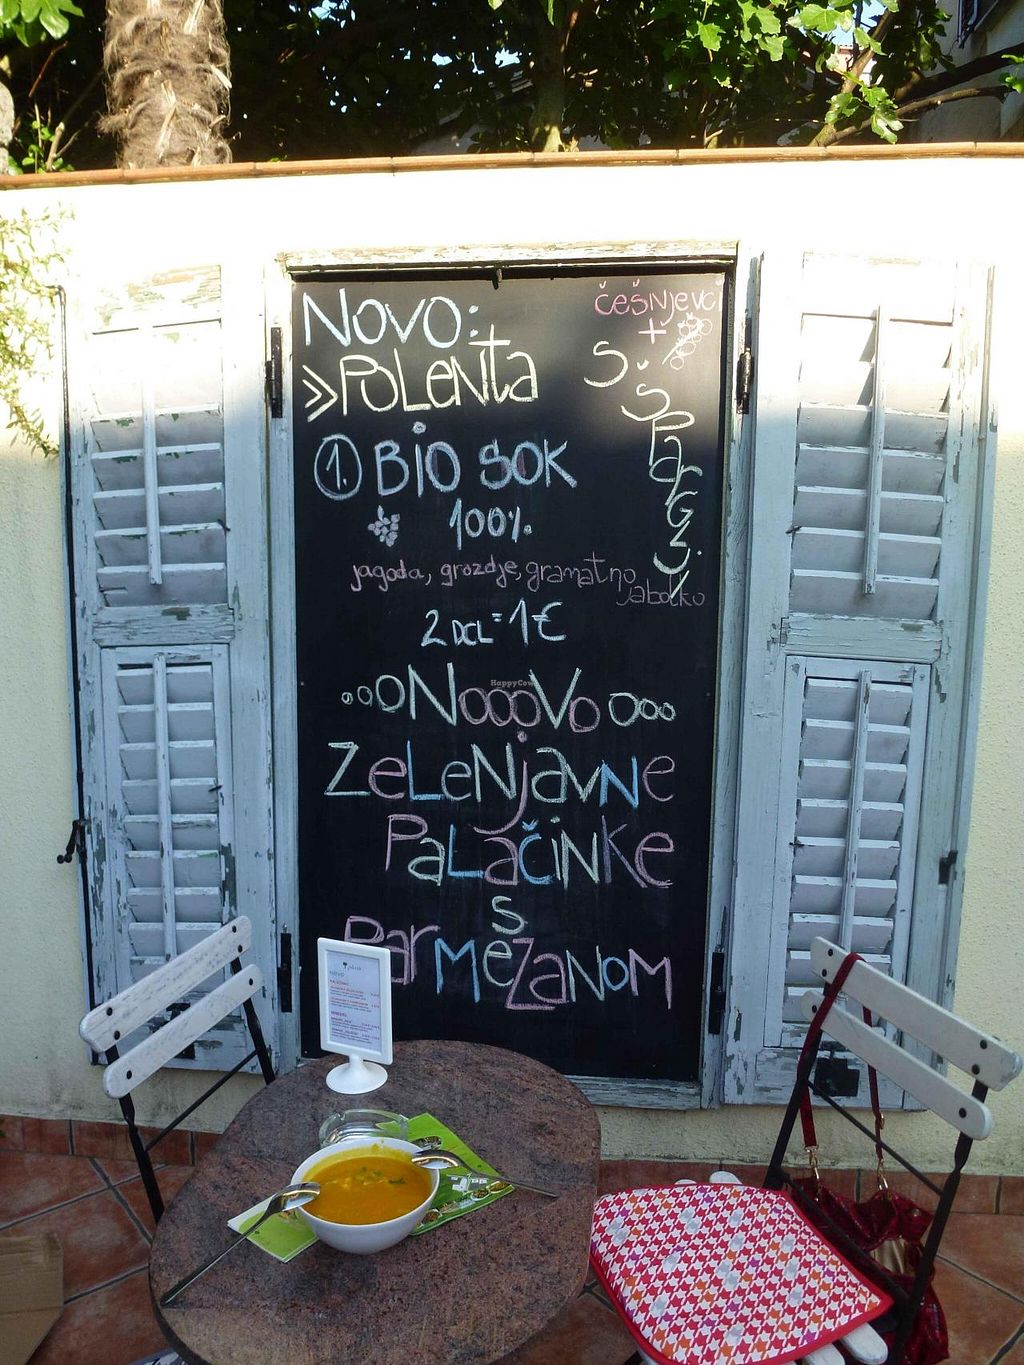 NOVO:
»POLENTA
češnjevci
+
S ŠPARGLJI
1. BIO SOK
100%
jagoda, grozdje, gramatno
jabolko
2 DCL = 1€
oooNoooVo ooo
ZELENJAVNE
PALAČINKE
S
PARMEZANOM
HappyCow
NOVO